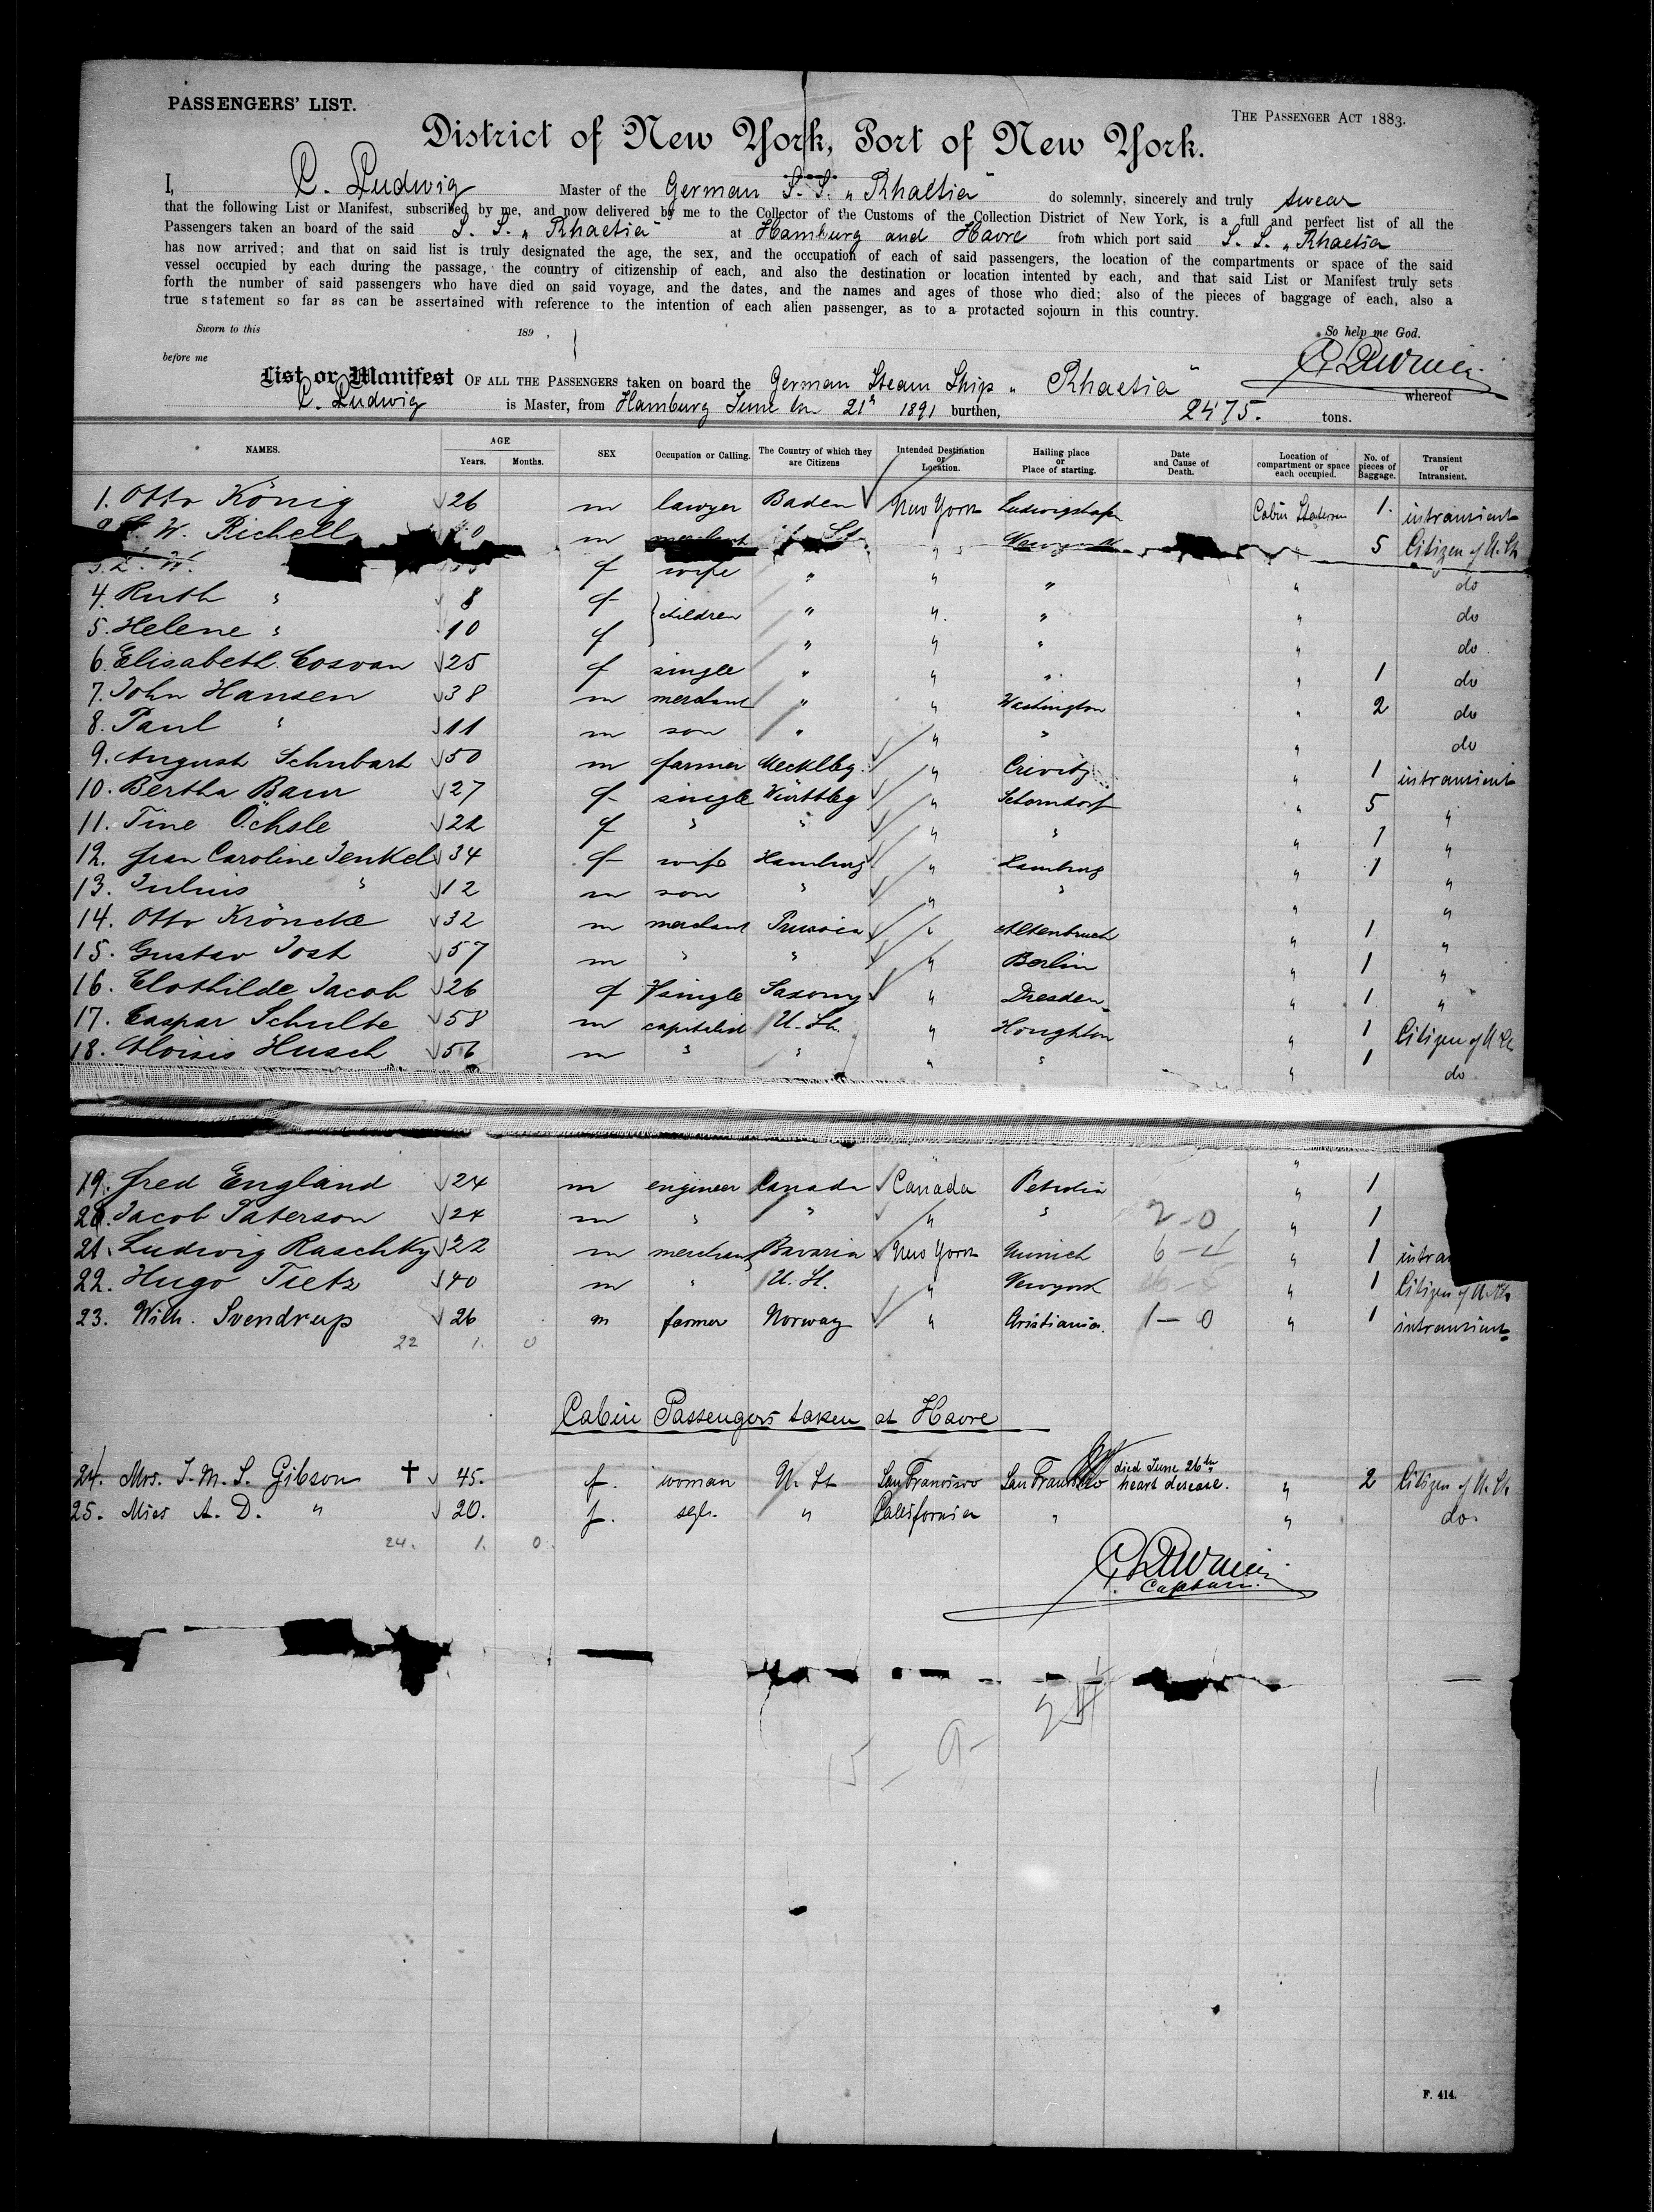 PASSENGERS' LIST.
THE PASSENGER ACT 1883.
District of New York, Port of New York.
I, C. Ludwig Master of the German S. S. „ Rhaetia " do solemnly, sincerely and truly swear
that the following List or Manifest, subscribed by me, and now delivered by me to the Collector of the Customs of the Collection District of New York, is a full and perfect list of all the
Passengers taken an board of the said S. S. „ Rhaetia " at Hamburg and Havre from which port said S. S. „ Rhaetia
has now arrived; and that on said list is truly designated the age, the sex, and the occupation of each of said passengers, the location of the compartments or space of the said
vessel occupied by each during the passage, the country of citizenship of each, and also the destination or location intented by each, and that said List or Manifest truly sets
forth the number of said passengers who have died on said voyage, and the dates, and the names and ages of those who died; also of the pieces of baggage of each, also a
true statement so far as can be assertained with reference to the intention of each alien passenger, as to a protacted sojourn in this country.
Sworn to this 189 . So help me God.
before me
List or Manifest OF ALL THE PASSENGERS taken on board the German Steam Ship „ Rhaetia " whereof
C. Ludwig is Master, from Hamburg June 21 1891 burthen, 2475. tons.
NAMES. AGE Years. Months. SEX Occupation or Calling. The Country of which they are Citizens Intended Destination or Location. Hailing place or Place of starting. Date and Cause of Death. Location of compartment or space each occupied. No. of pieces of Baggage. Transient or Intransient.
1. Otto König 26 m lawyer Baden New York Ludwigshafn Cabin 1. intransient
W. Richell m merchant " Newyork 5 Citizen of U. St.
f wife " " " " do
4. Ruth " 8 f children " " " " do
5. Helene " 10 f " " " " do
6. Elisabeth Cosvan 25 f single " " " " 1 do
7. John Hansen 38 m merchant " " Washington " 2 do
8. Paul " 11 m son " " " " do
9. August Schubart 50 m farmer Mecklbg. " Crivitz " 1 intransient
10. Bertha Baur 27 f single Württbg " Schorndorf " 5 "
11. Tine Öchsle 22 f " " " " " 1 "
12. Frau Caroline Jenkel 34 f wife Hamburg " Hamburg " 1 "
13. Julius " 12 m son " " " " "
14. Otto Kröncke 32 m merchant Prussia " Altenbruch " 1 "
15. Gustav Jost 57 m " " " Berlin " 1 "
16. Clothilde Jacob 26 f single Saxony " Dresden " 1 "
17. Caspar Schulte 58 m capitalist U. St. " Houghton " 1 Citizen of U. St.
18. Aloisis Husch 56 m " " " " " 1 do
19. Fred England 24 m engineer Canada Canada Petrolia " 1
20. Jacob Paterson 24 m " " " " 2-0 " 1
21. Ludwig Raschky 22 m merchant Bavaria New York Munich " 1 intra
22. Hugo Tietz 40 m " U. St. " Newyork " 1 Citizen of U. St.
23. Wilh. Svendrup 26 m farmer Norway " Cristiania. 1 - 0 " 1 intransient
22 1. 0
Cabin Passengers taken at Havre
24. Mrs. J. M. S. Gibson † 45. f. woman U. St San Francisco San Francisco died June 26th heart disease. " 2 Citizen of U. St.
25. Miss A. D. " 20. f. sgle. " California " " do.
24. 1. 0.
Captain.
24
15 - 9 -
F. 414.